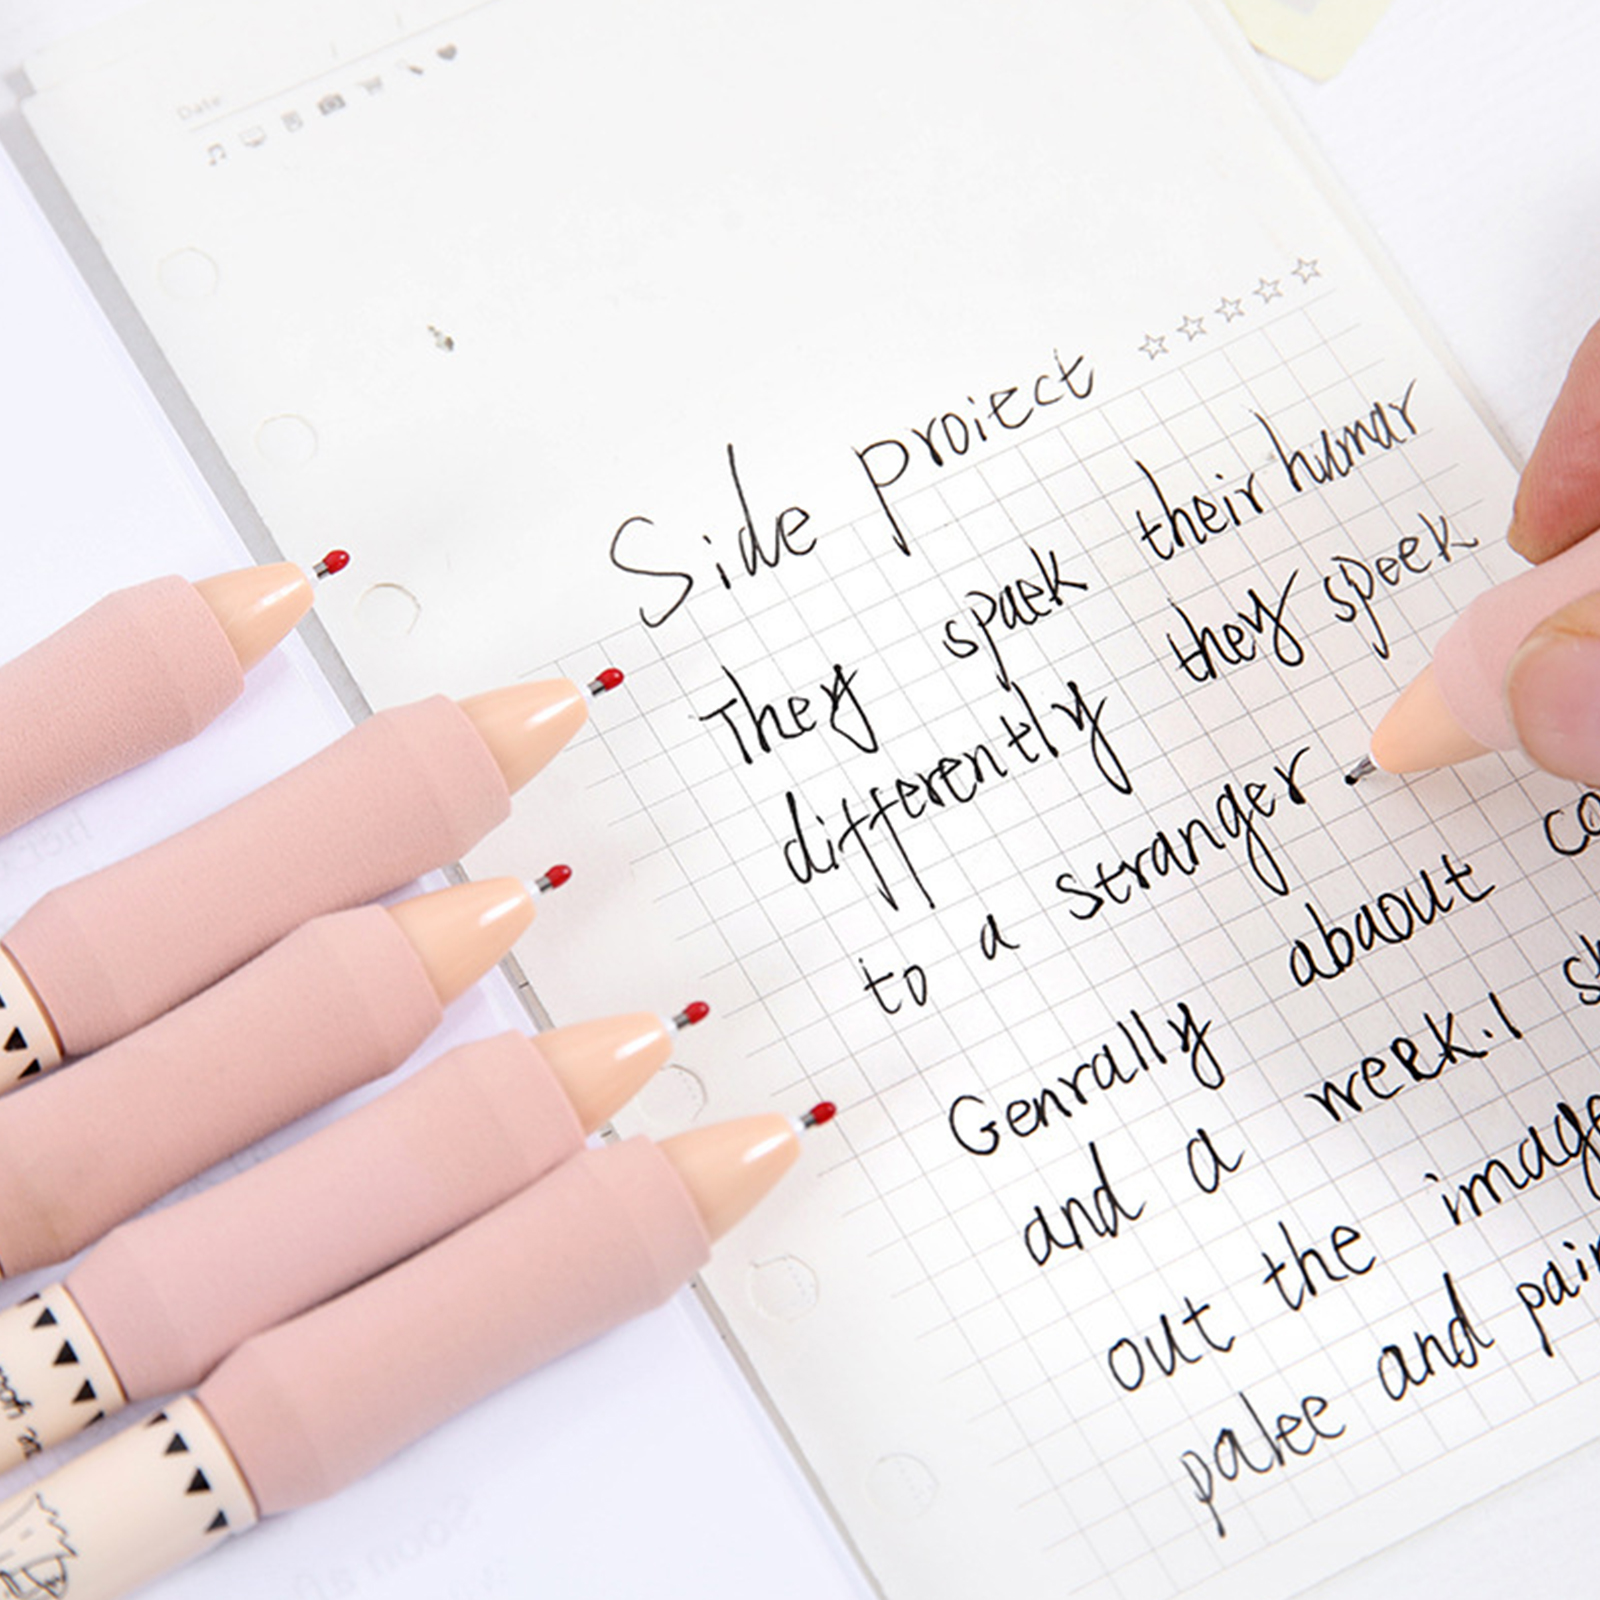 Date
Side proiect
They spaek their humar
differently they speek
to a stranger
Genrally abaout co
and a week. I s
out the image
palee and pain